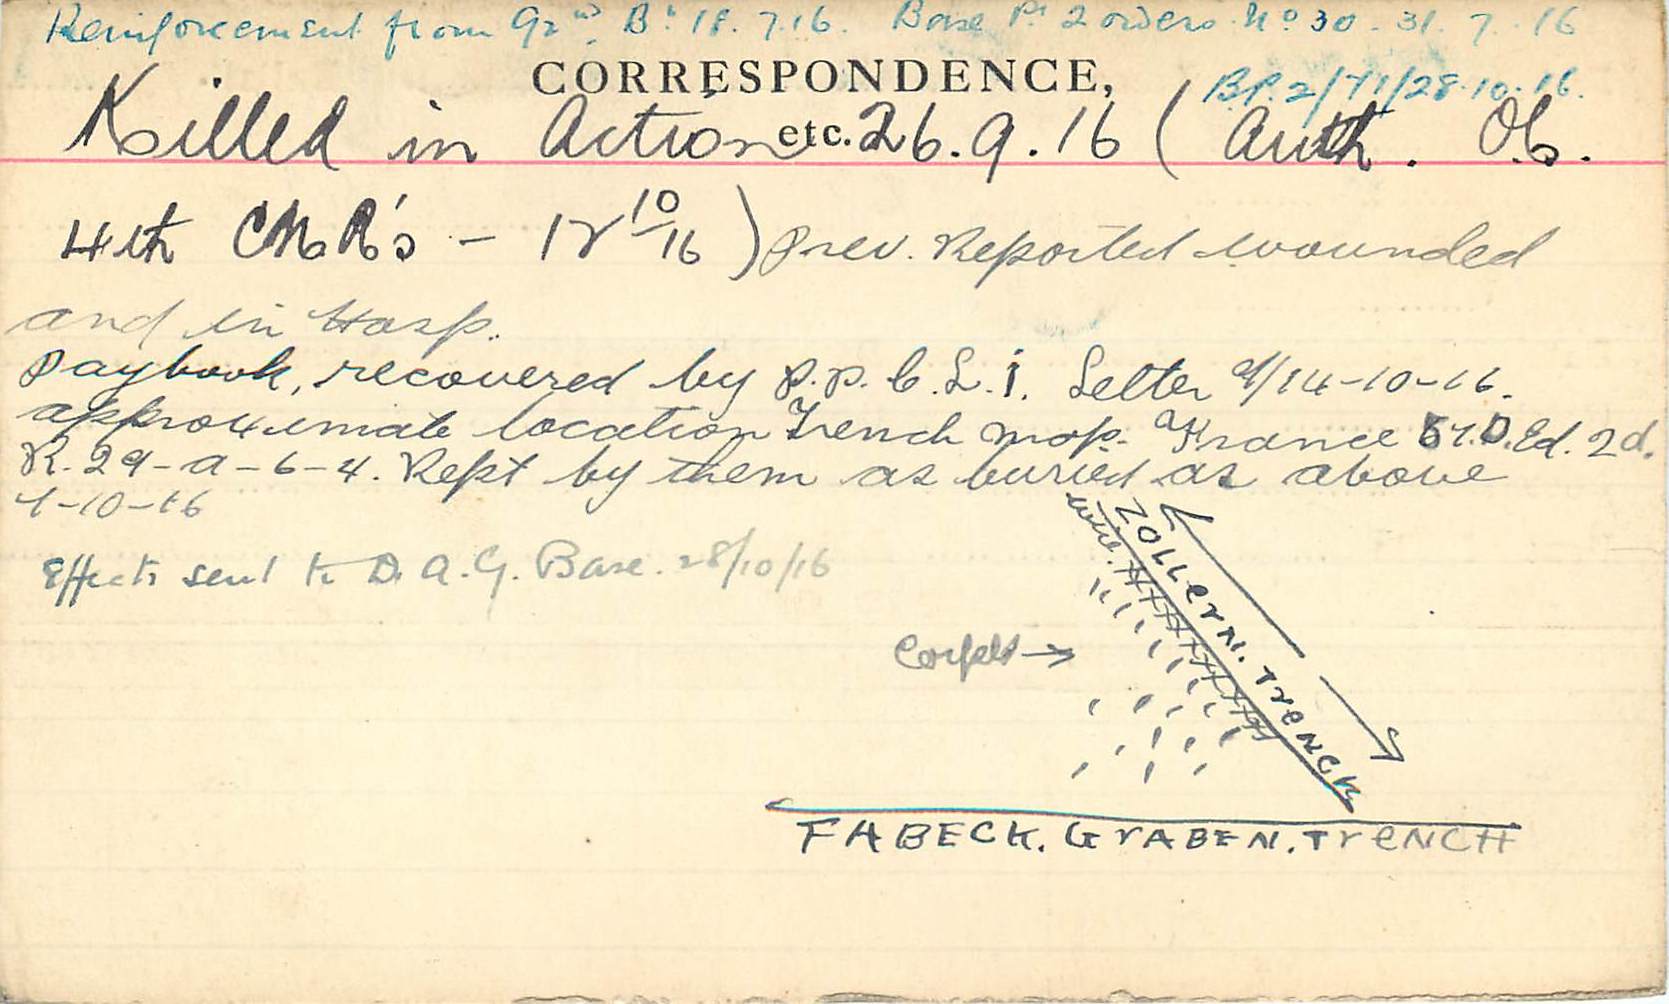 Reinforcement from 92nd Bn 18.7.16. Base Pt 2 orders No 30 - 31.7.16
CORRESPONDENCE,
BP.2/71/28.10.16.
etc.
Killed in Action 26.9.16 (Auth. O.C.
4th CMR's - 12 10/16) prev. Reported wounded
and in Hosp.
Paybook, recovered by P.P.C.L.I. Letter d/14-10-16.
approximate location Trench map. France 57.D. Ed. 2d.
R. 29-a-6-4. Rept by them as buried as above
7-10-16
Effects sent to D.A.G. Base. 28/10/16
wire.
ZOLLerN. TrENCH
→
FABECK. GrABEN. TrENCH